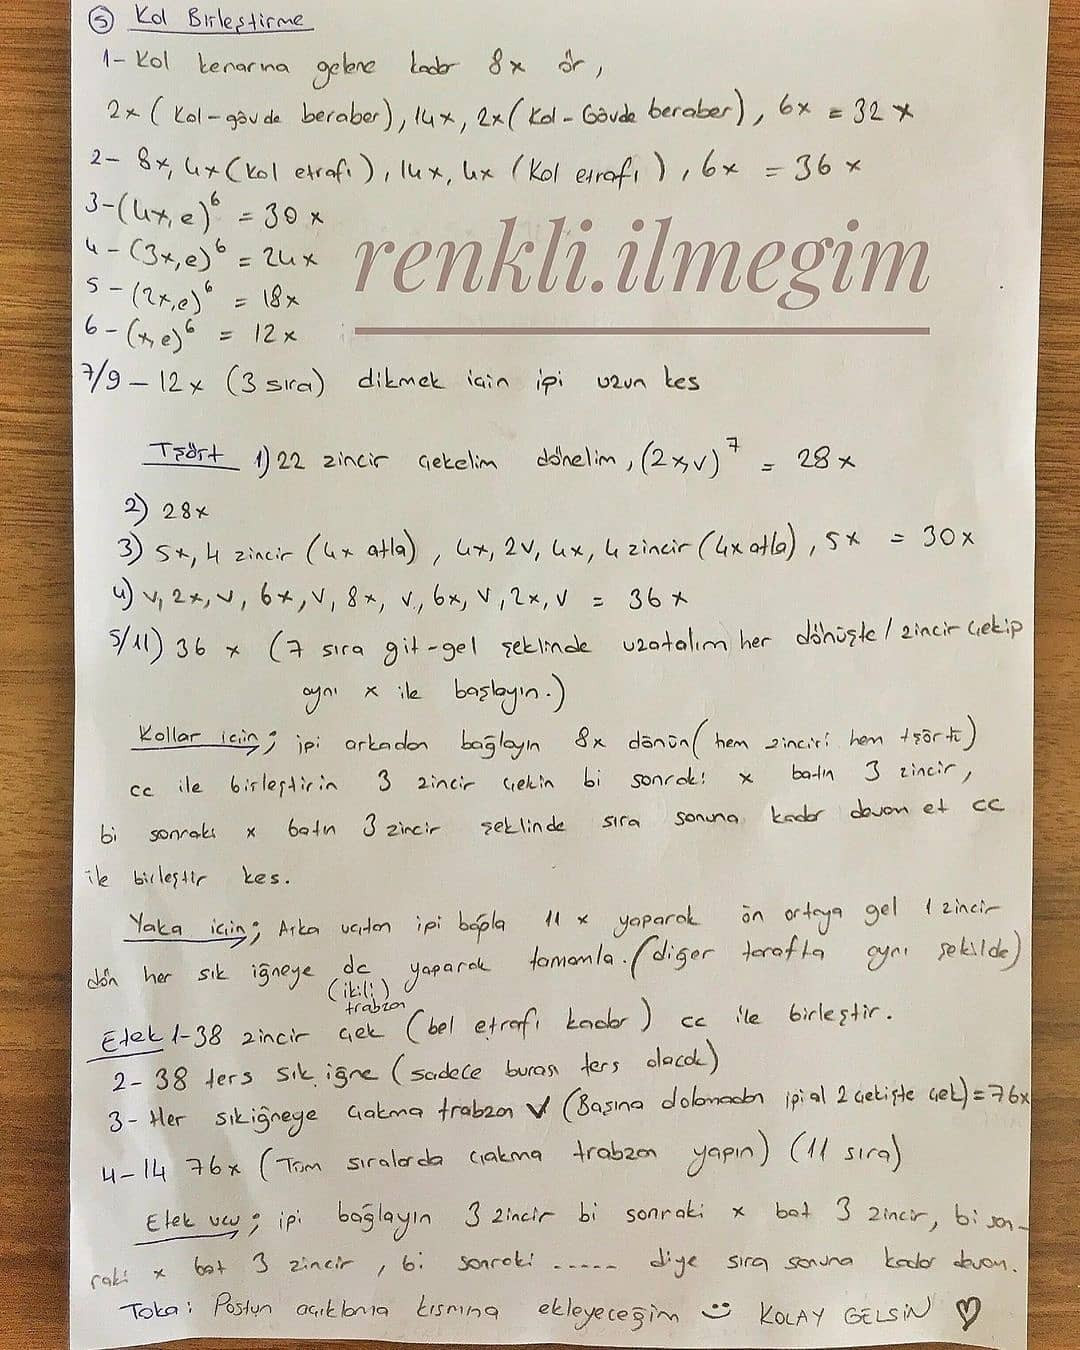 5 Kol Birleştirme
1- Kol kenarına gelene kadar 8x ör,
2x (Kol-gövde beraber), 14x, 2x (Kol-Gövde beraber), 6x = 32x
2- 8x, 4x (Kol etrafı), 14x, 4x (Kol etrafı), 6x = 36x
3-(4x,e)⁶ = 30x
4-(3x,e)⁶ = 24x
5-(2x,e)⁶ = 18x
6-(x,e)⁶ = 12x
renkli.ilmegim
7/9-12x (3 sıra) dikmek için ipi uzun kes
Tşört 1) 22 zincir çekelim dönelim, (2x,v)⁷ = 28x
2) 28x
3) 5x, 4 zincir (4x atla), 4x, 2v, 4x, 4 zincir (4x atla), 5x = 30x
4) v, 2x, v, 6x, v, 8x, v, 6x, v, 2x, v = 36x
5/11) 36x (7 sıra git-gel şeklinde uzatalım her dönüşte 1 zincir çekip
aynı x ile başlayın.)
Kollar için; ipi arkadan bağlayın 8x dönün (hem zinciri hem tşörtü)
cc ile birleştirin 3 zincir çekin bi sonraki x batın 3 zincir,
bi sonraki x batın 3 zincir şeklinde sıra sonuna kadar devam et cc
ile birleştir kes.
Yaka için; Arka uçtan ipi bağla 11x yaparak ön ortaya gel 1 zincir
dön her sık iğneye dc yaparak tamamla. (diğer tarafta aynı şekilde)
(ikili)
trabzan
Etek 1-38 zincir çek (bel etrafı kadar) cc ile birleştir.
2- 38 ters sık iğne (sadece burası ters olacak)
3- Her sıkiğneye çakma trabzan V (Başına dolamadan ipi al 2 çekişte çek) = 76x
4-14 76x (Tüm sıralarda çakma trabzan yapın) (11 sıra)
Etek ucu; ipi bağlayın 3 zincir bi sonraki x bat 3 zincir, bi son-
raki x bat 3 zincir, bi sonraki ..... diye sıra sonuna kadar devam.
Toka: Postun açıklama kısmına ekleyeceğim :) KOLAY GELSİN ♡